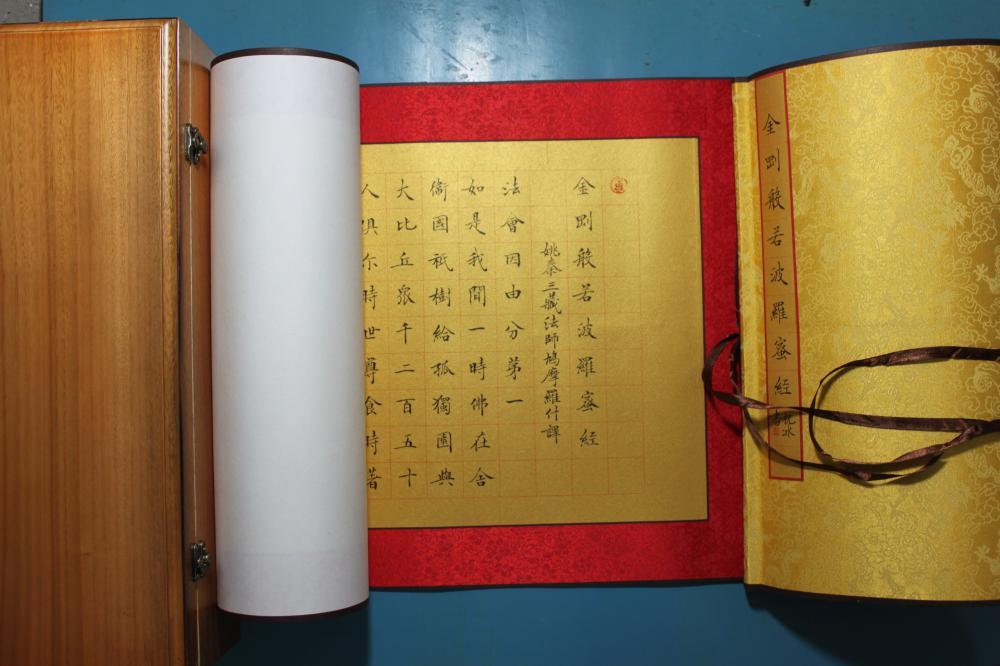 金剛般若波羅蜜經
金剛般若波羅蜜經
姚秦三藏法師鳩摩羅什譯
法會因由分苐一
如是我聞一時佛在舍
衞國祇樹給孤獨園與
大比丘衆千二百五十
人俱尔時世尊食時著